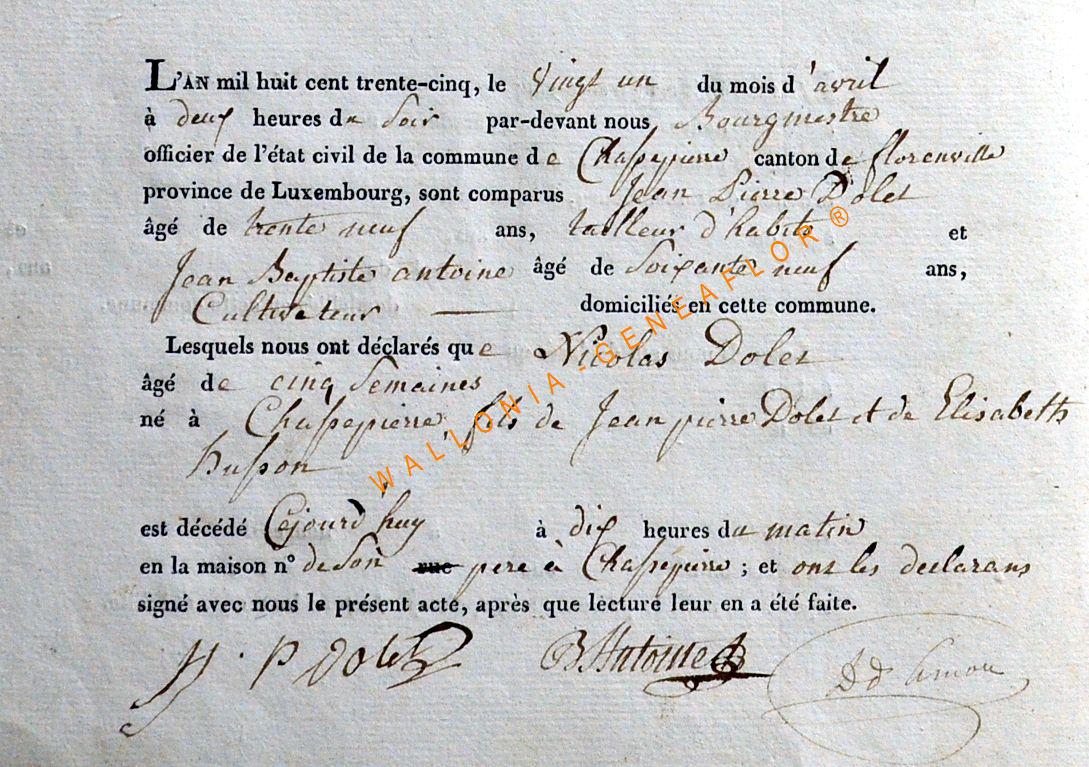 L'AN mil huit cent trente-cinq, le vingt un du mois d'avril
à deux heures du Soir par-devant nous Bourgmestre
officier de l'état civil de la commune de Chassepierre canton de florenville
province de Luxembourg, sont comparus Jean Pierre Dolet
âgé de trente neuf ans, tailleur d'habits et
Jean Baptiste antoine âgé de Soixante neuf ans,
Cultivateur domiciliés en cette commune.
Lesquels nous ont déclarés que Nicolas Dolet
âgé de cinq Semaines
né à Chassepierre, fils de Jean pierre Dolet et de Elisabeth
husson
est décédé Cejourd'huy à dix heures du matin
en la maison n° de Son rue pere à Chassepierre ; et ont les declarans
signé avec nous le présent acte, après que lecture leur en a été faite.
J. P Dolet B. Antoine
WALLONIA-GENEAFLOR ®